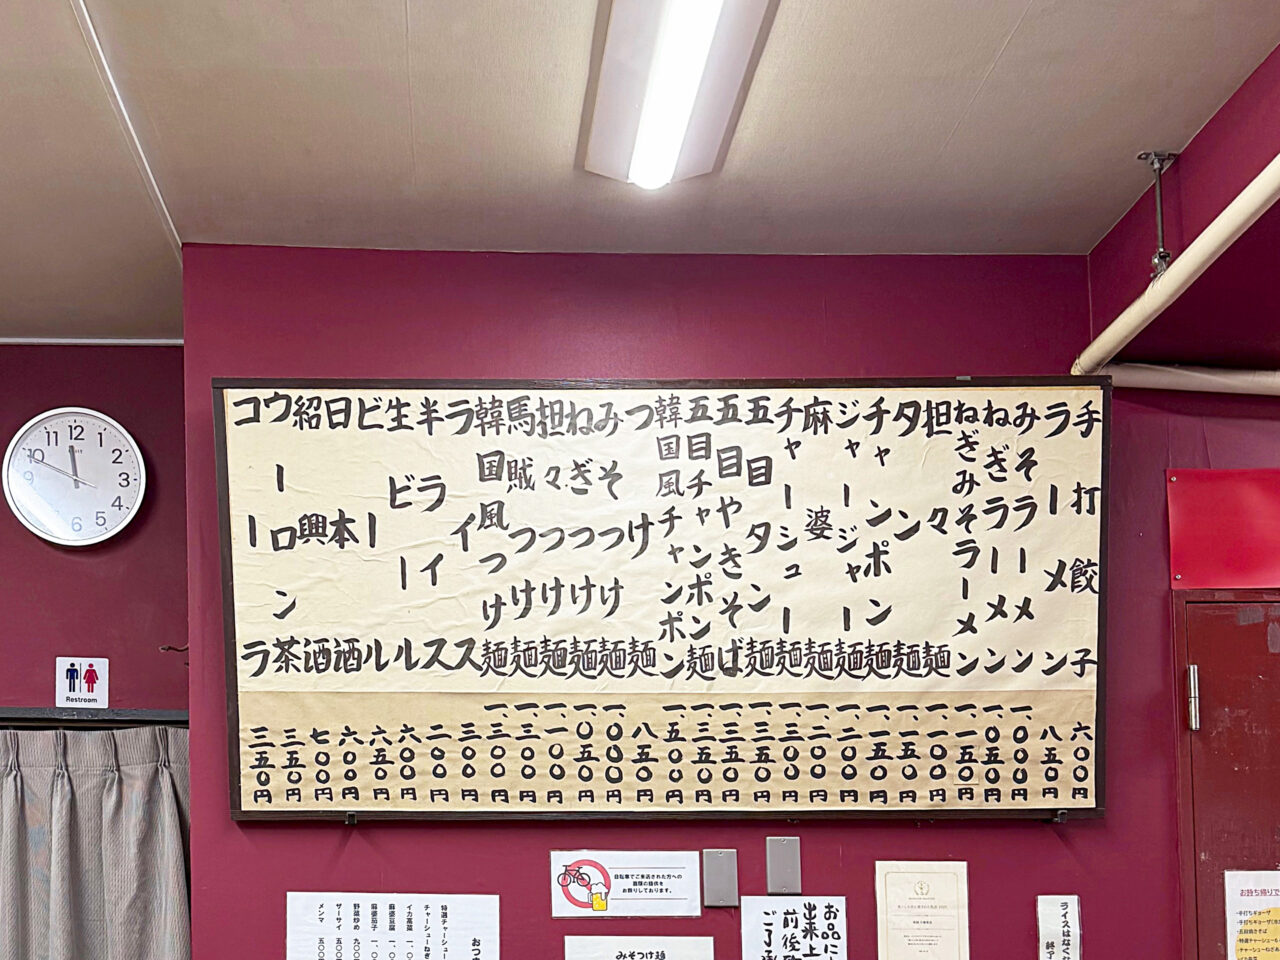 手打餃子 六〇〇円
ラーメン 八五〇円
みそラーメン 一、〇〇〇円
ねぎラーメン 一、〇五〇円
ねぎみそラーメン 一、一五〇円
担々麺 一、一〇〇円
タン麺 一、一五〇円
チャンポン麺 一、一五〇円
ジャージャー麺 一、二〇〇円
麻婆麺 一、二〇〇円
チャーシュー麺 一、三〇〇円
五目タン麺 一、三五〇円
五目やきそば 一、三五〇円
五目チャンポン麺 一、三五〇円
韓国風チャンポン 一、五〇〇円
つけ麺 八五〇円
みそつけ麺 一、〇〇〇円
ねぎつけ麺 一、〇五〇円
担々つけ麺 一、一〇〇円
馬賊つけ麺 一、三〇〇円
韓国風つけ麺 一、三〇〇円
ライス 三〇〇円
半ライス 二〇〇円
生ビール 六〇〇円
ビール 六五〇円
日本酒 六〇〇円
紹興酒 七〇〇円
ウーロン茶 三五〇円
コーラ 三五〇円
12 1 2 3 4 5 6 7 8 9 10 11
Restroom
自転車でご来店された方への
酒類の提供を
お断りしております。
おつ
特選チャーシュー
チャーシューねぎ
イカ高菜 一、
麻婆豆腐 一、
麻婆茄子 一、
野菜炒め 九〇
ザーサイ 五〇
メンマ 五〇〇
みそつけ麺
お品に
出来上
前後致
ご了承
ライスはなく
終了
お持ち帰りで